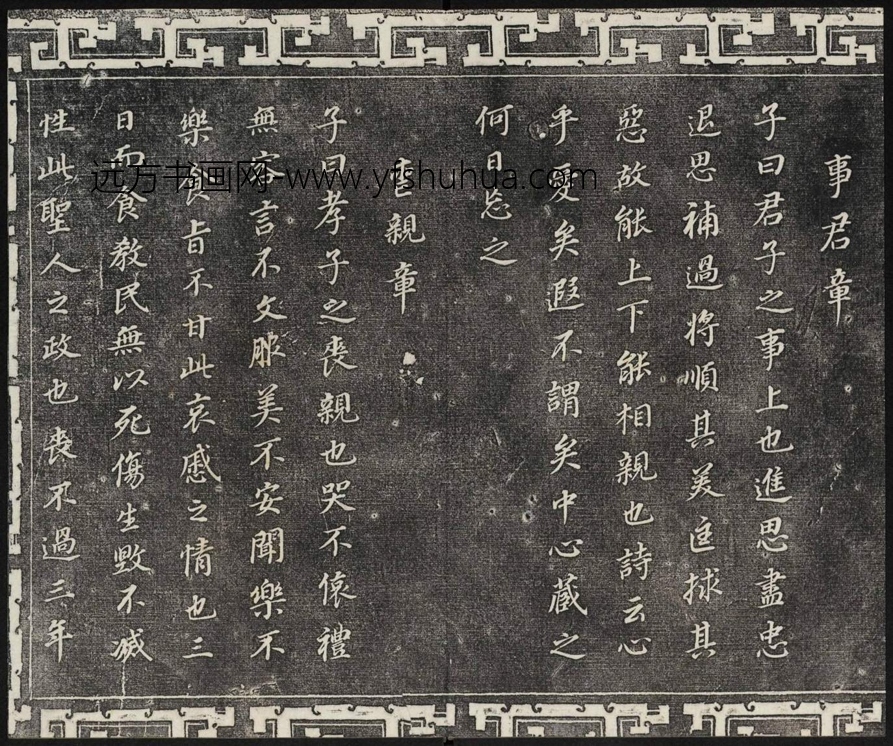 事君章
子曰君子之事上也進思盡忠
退思補過將順其美匡捄其
惡故能上下能相親也詩云心
乎愛矣遐不謂矣中心藏之
何日忘之
喪親章
子曰孝子之喪親也哭不偯禮
無容言不文服美不安聞樂不
樂食旨不甘此哀慼之情也三
日而食教民無以死傷生毀不滅
性此聖人之政也喪不過三年
远方书画网-www.yfshuhua.com